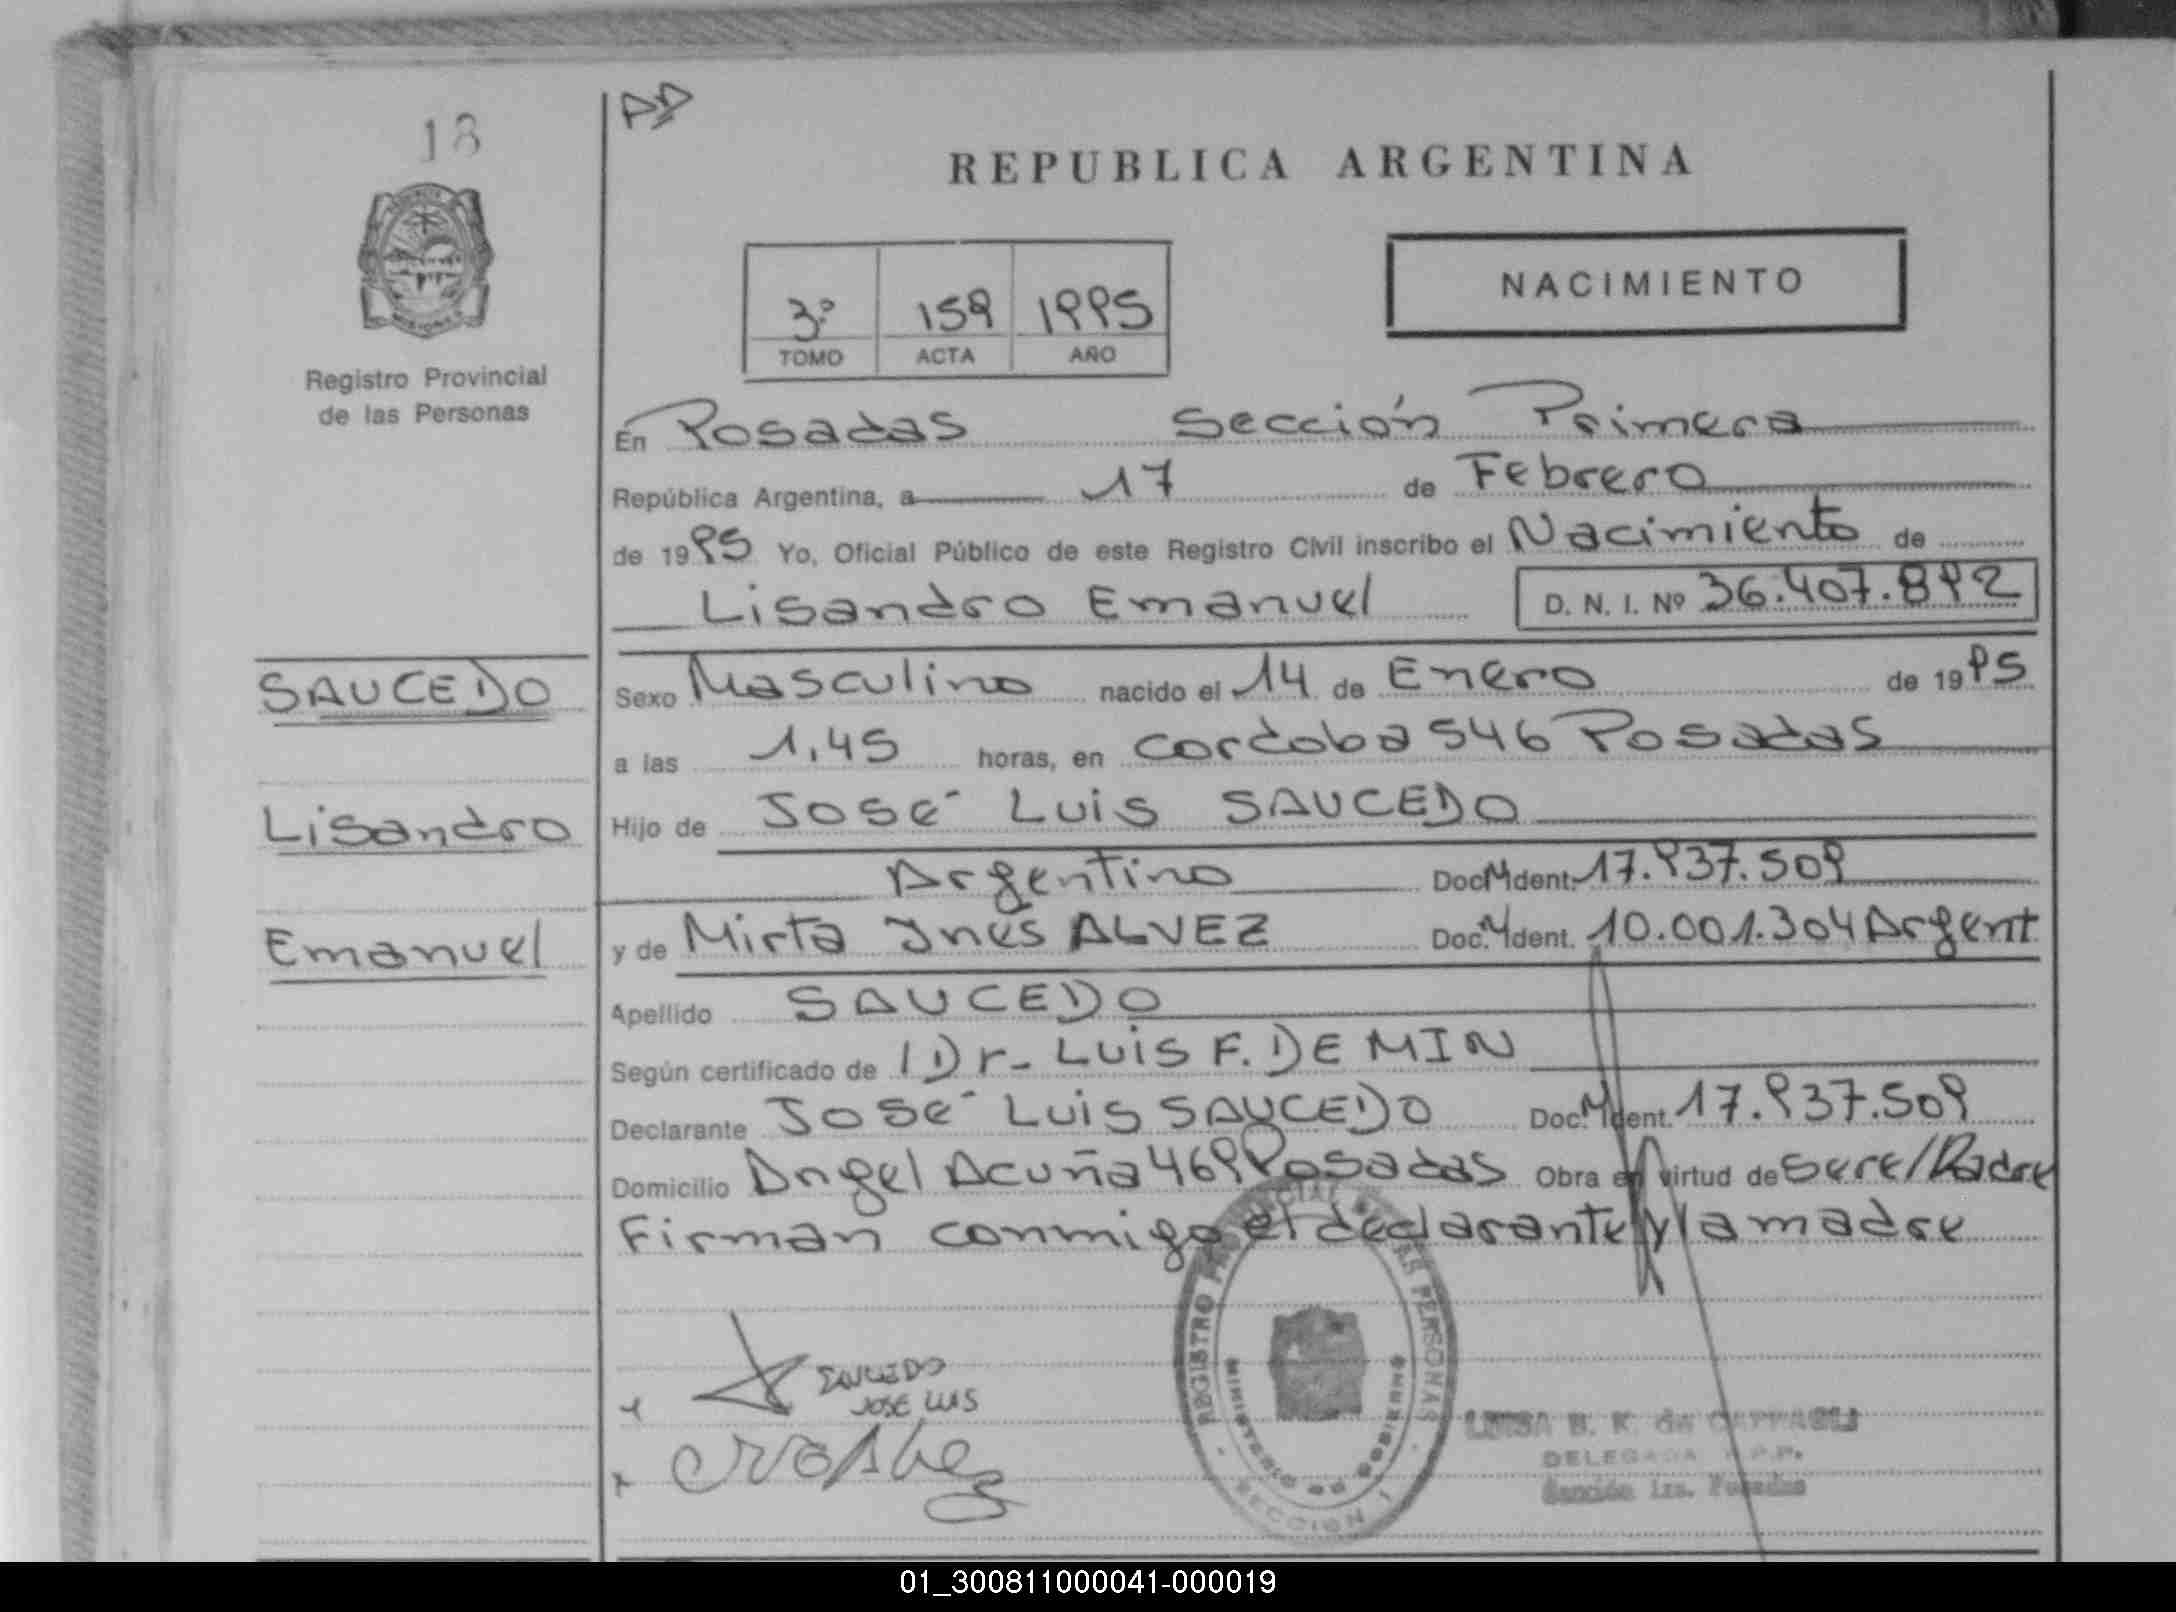 18
REPUBLICA ARGENTINA
NACIMIENTO
3º 159 1995
TOMO ACTA AÑO
Registro Provincial
de las Personas
En Posadas Sección Primera
República Argentina, a 17 de Febrero
de 1995 Yo, Oficial Público de este Registro Civil inscribo el Nacimiento de
Lisandro Emanuel D. N. I. Nº 36.407.892
SAUCEDO
Lisandro
Emanuel
Sexo Masculino nacido el 14 de Enero de 1995
a las 1,45 horas, en Cordoba 546 Posadas
Hijo de José Luis SAUCEDO
Argentino Doc. Ident. 17.937.509
y de Mirta Ines ALVEZ Doc. Ident. 10.001.304 Argent
Apellido SAUCEDO
Según certificado de Dr- LUIS F. DE MIN
Declarante José Luis SAUCEDO Doc. Ident. 17.937.509
Domicilio Angel Acuña 469 Posadas Obra en virtud de Sere/Padre
Firman conmigo el declarante y la madre
SAUCEDO
JOSE LUIS
REGISTRO PROVINCIAL DE LAS PERSONAS
MINISTERIO DE GOBIERNO
SECCION 1
LUISA B. K. de
DELEGADA R.P.P.
Sección 1ra. Posadas
01_300811000041-000019